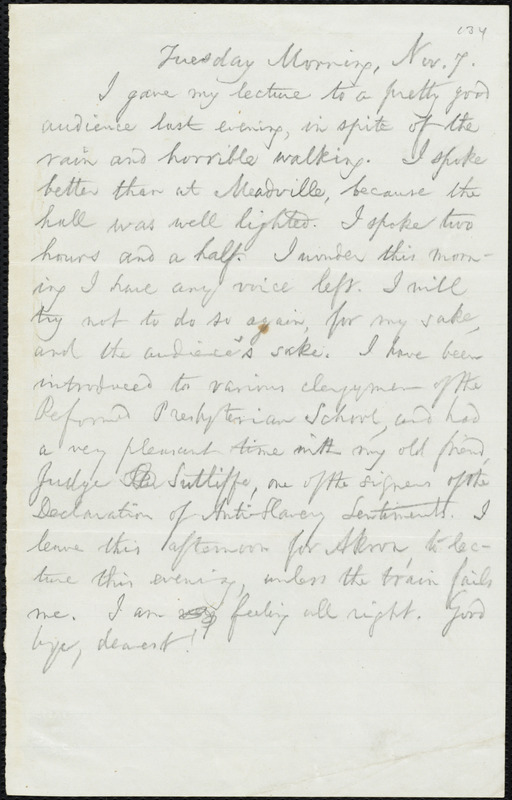 134
Tuesday Morning, Nov. 7.
I gave my lecture to a pretty good
audience last evening, in spite of the
rain and horrible walking. I spoke
better than at Meadville, because the
hall was well lighted. I spoke two
hours and a half. I wonder this morn-
ing I have any voice left. I will
try not to do so again, for my sake,
and the audience's sake. I have been
introduced to various clergymen of the
Reformed Presbyterian School, and had
a very pleasant time with my old friend
Judge Sutliffe, one of the signers of the
Declaration of Anti-Slavery Sentiments. I
leave this afternoon for Akron, to lec-
ture this evening, unless the train fails
me. I am feeling all right. Good
bye, dearest!